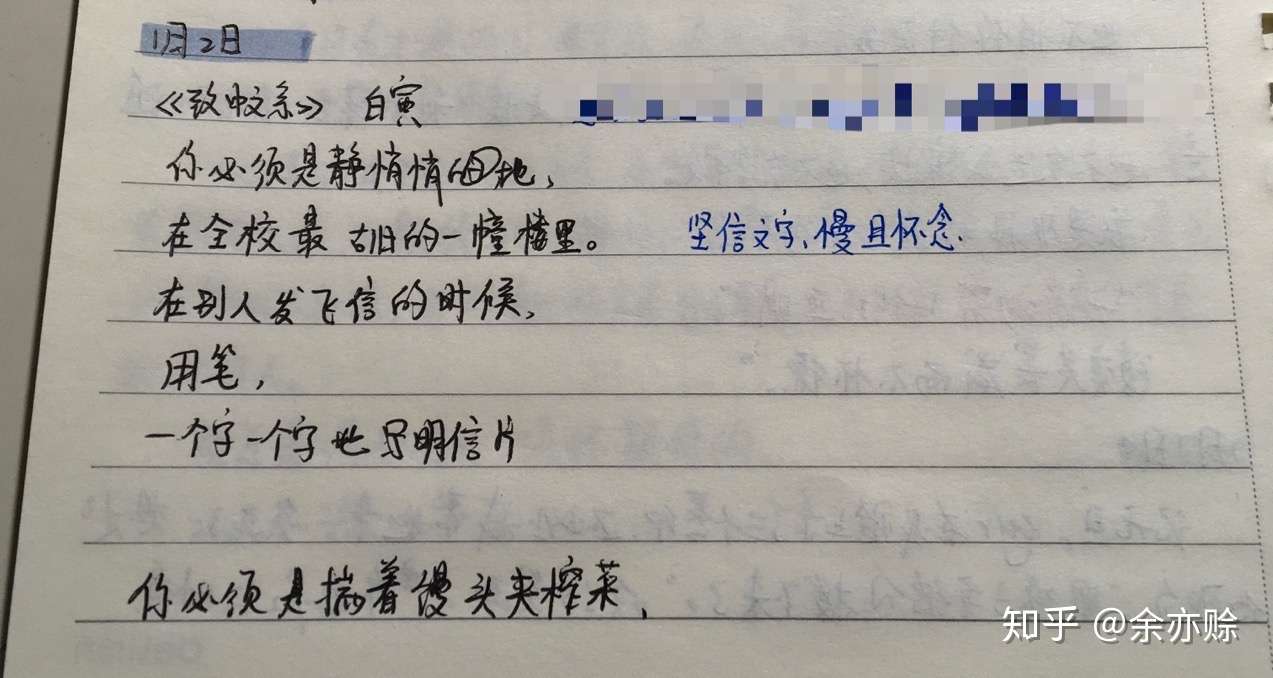 11月2日
《致中文系》 白寅
你必须是静悄悄的地,
在全校最古旧的一幢楼里。 坚信文字、慢且怀念.
在别人发飞信的时候,
用笔,
一个字一个字地写明信片
你必须是揣着馒头夹榨菜,
知乎 @余亦赊